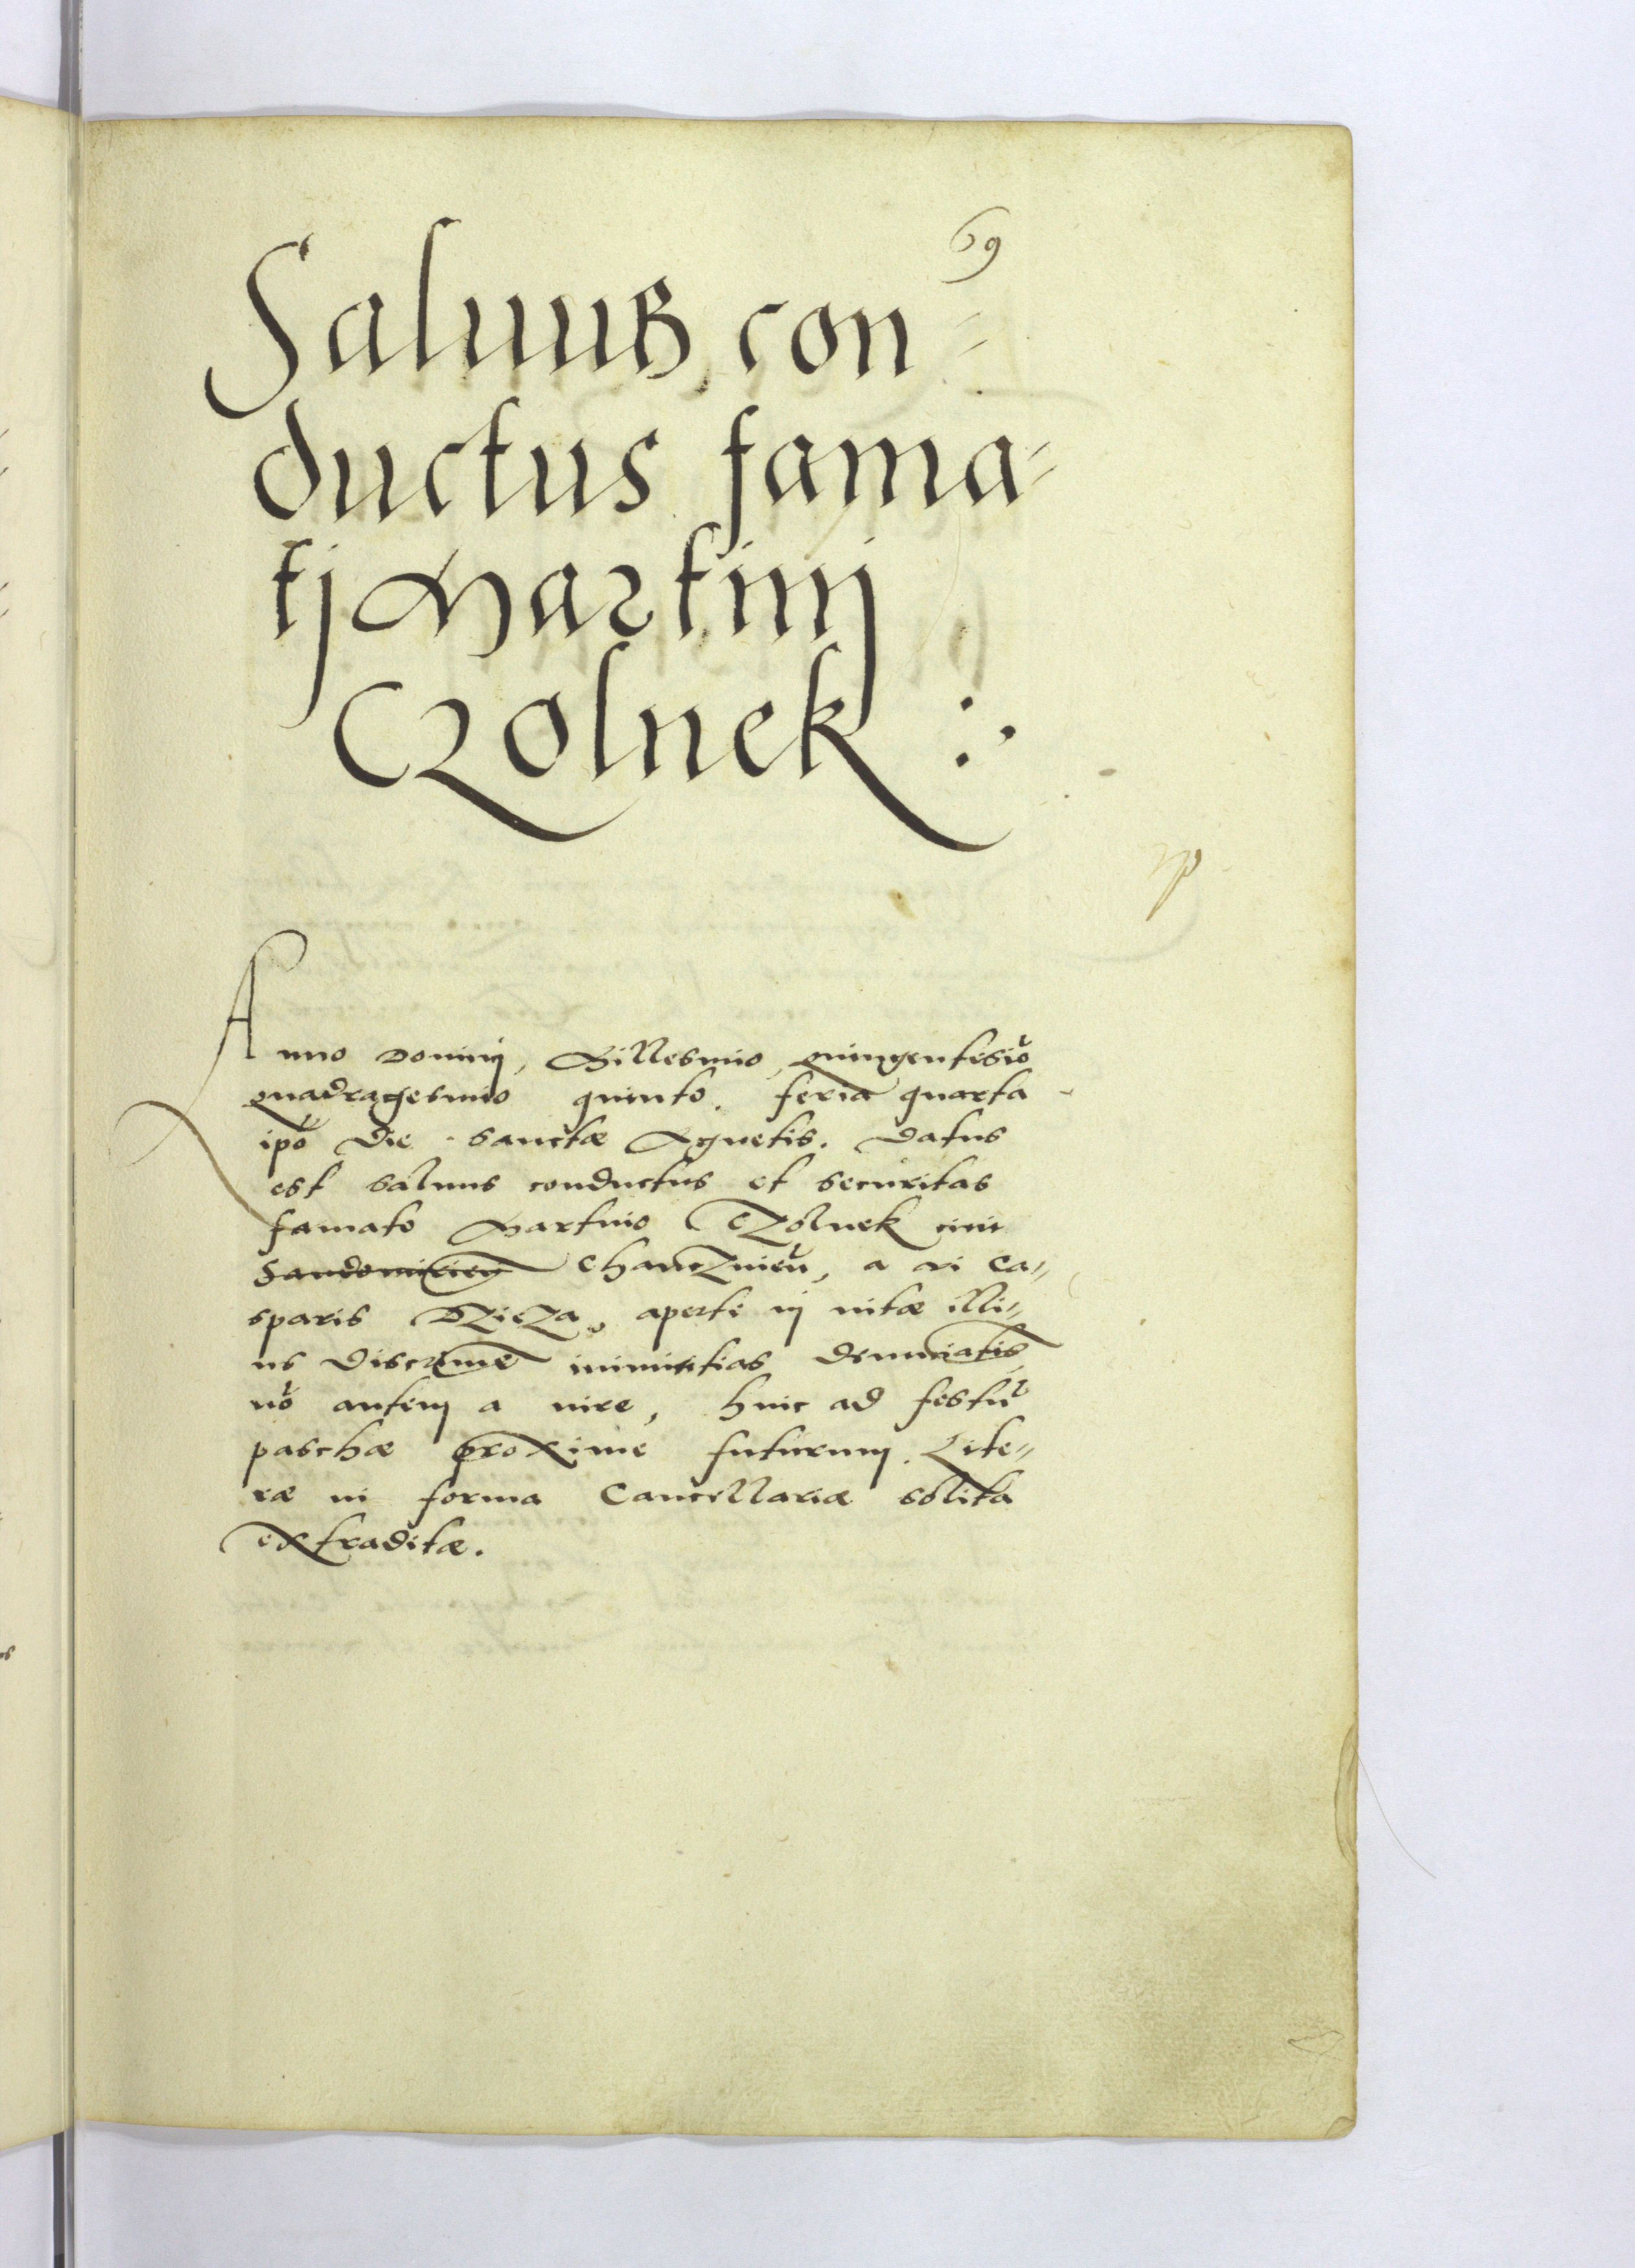 69
Saluus con=
ductus fama=
tj Martinj
Czolnek :.
Anno Dominj, Millesimo, quingentesiō
quadragesimo quinto. feria quarta
ipō die sanctæ Agnetis. Datus
est saluus conductus et securitas
famato Martino Czolnek ciui
Sandomirien Chancznieñ, a vi Ca=
sparis aperte in vitæ illi=
us discrimē inimicitias denunciatis
nō autem a iure, hinc ad festū
paschæ proxime futurum. Lite=
ræ in forma Cancellariæ solita
extraditæ.